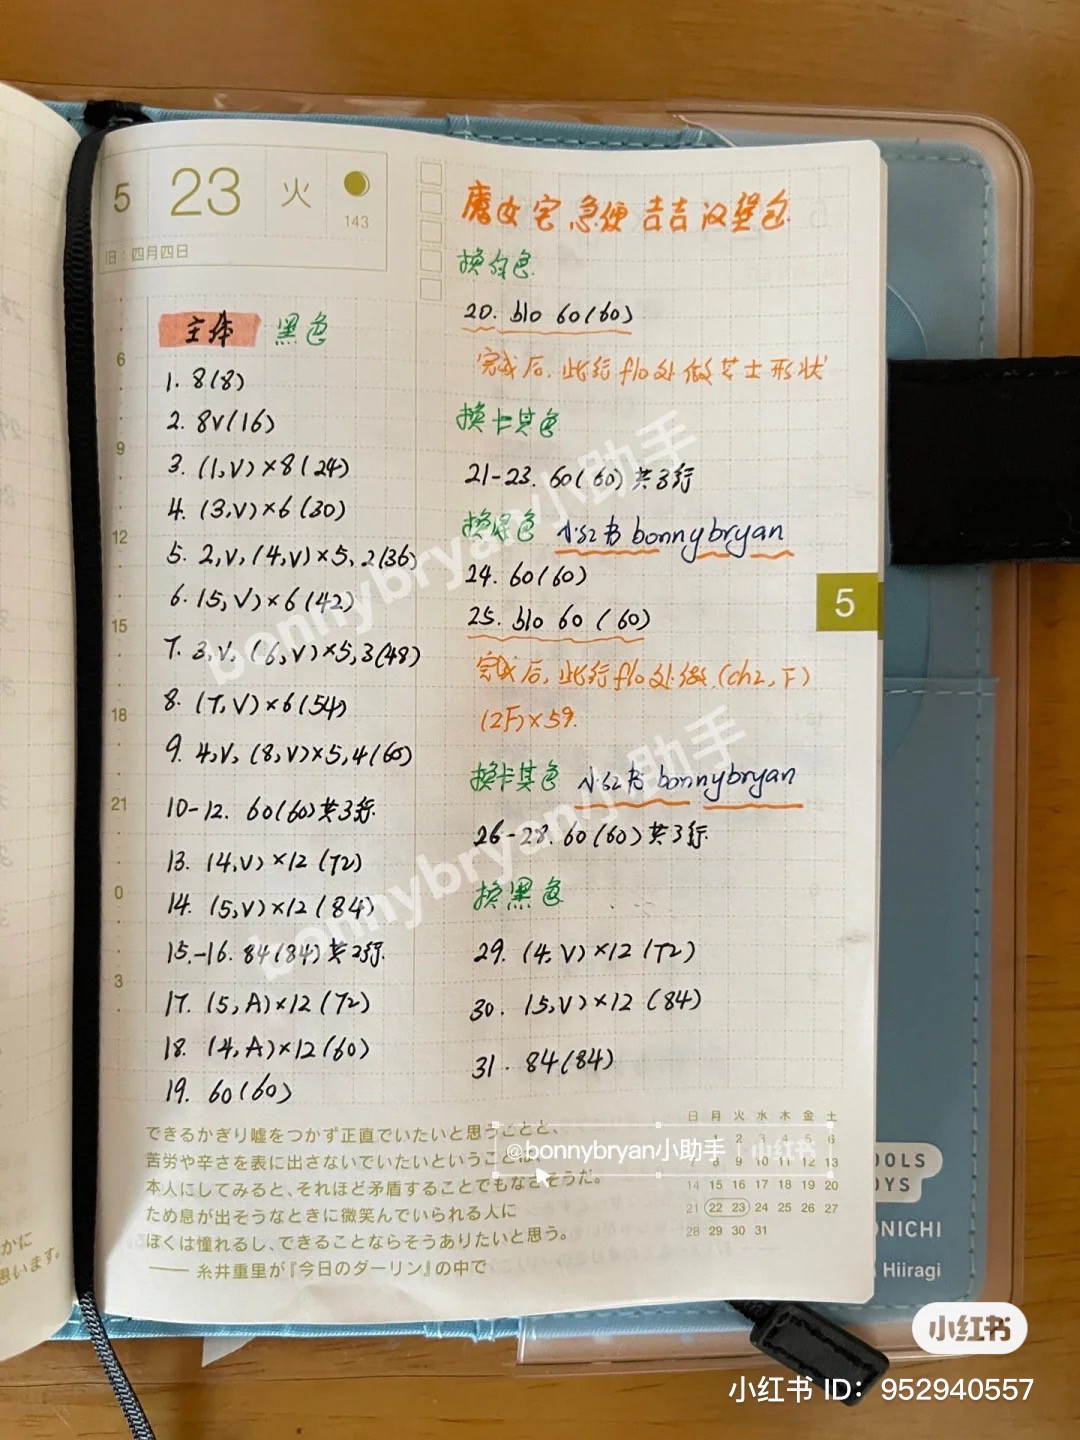 5 23 火
143
旧:四月四日
主体 黑色
6
1. 8(8)
2. 8V(16)
9
3. (1,V)×8(24)
4. (3,V)×6(30)
12
5. 2,V,(4,V)×5,2(36)
6. (5,V)×6(42)
15
7. 3,V,(6,V)×5,3(48)
8. (7,V)×6(54)
18
9. 4,V,(8,V)×5,4(60)
21
10-12. 60(60)共3行.
13. (4,V)×12(72)
0
14. (5,V)×12(84)
15.-16. 84(84)共2行.
3
17. (5,A)×12(72)
18. (4,A)×12(60)
19. 60(60)
魔女宅急便吉吉汉堡包.
换白色.
20. blo 60(60)
完成后,此行flo处做芝士形状
换卡其色
21-23. 60(60)共3行
换绿色 小红书bonnybryan
24. 60(60)
25. blo 60(60)
完成后,此行flo处做(ch2,F)
(2F)×59.
换卡其色 小红书bonnybryan
26-28. 60(60)共3行.
换黑色
29. (4,V)×12(72)
30. (5,V)×12(84)
31. 84(84)
5
できるかぎり嘘をつかず正直でいたいと思うことと、
苦労や辛さを表に出さないでいたいということは、
本人にしてみると、それほど矛盾することでもなさそうだ。
ため息が出そうなときに微笑んでいられる人に
ぼくは憧れるし、できることならそうありたいと思う。
—— 糸井重里が『今日のダーリン』の中で
日 月 火 水 木 金 土
1 2 3 4 5 6
7 8 9 10 11 12 13
14 15 16 17 18 19 20
21 22 23 24 25 26 27
28 29 30 31
かに
思います。
OOLS
OYS
ONICHI
Hiiragi
bonnybryan小助手
bonnybryan小助手
@bonnybryan小助手 | 小红书
小红书
小红书 ID：952940557